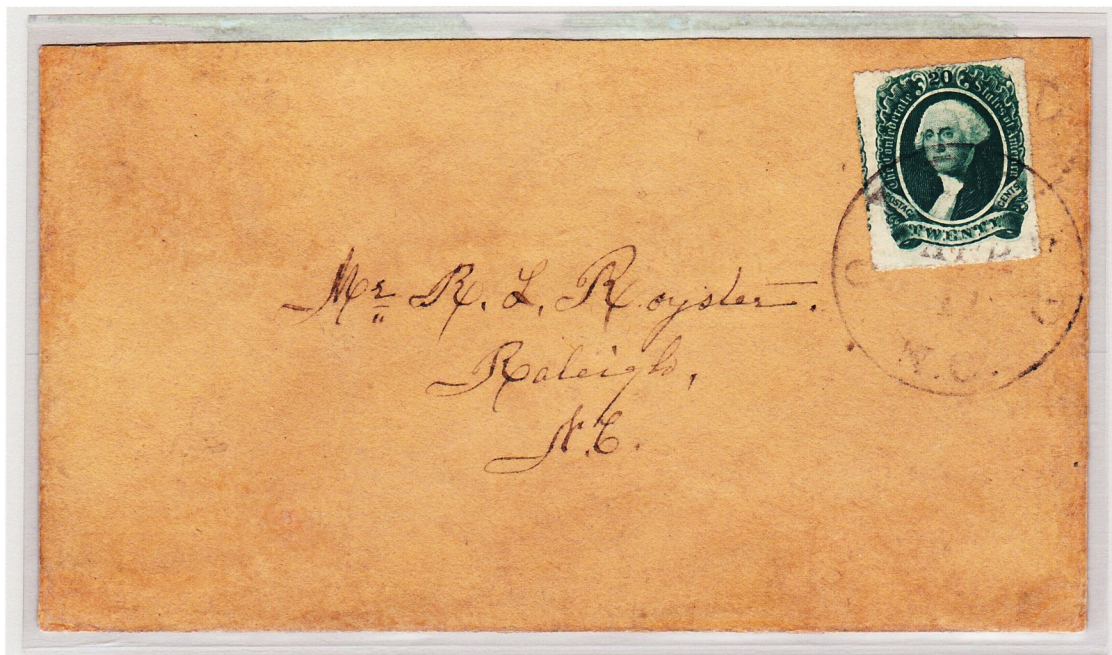 20
The Confederate States of America
POSTAGE CENTS
TWENTY
11
N.C.
Mr R. L. Royster.
Raleigh,
N.C.